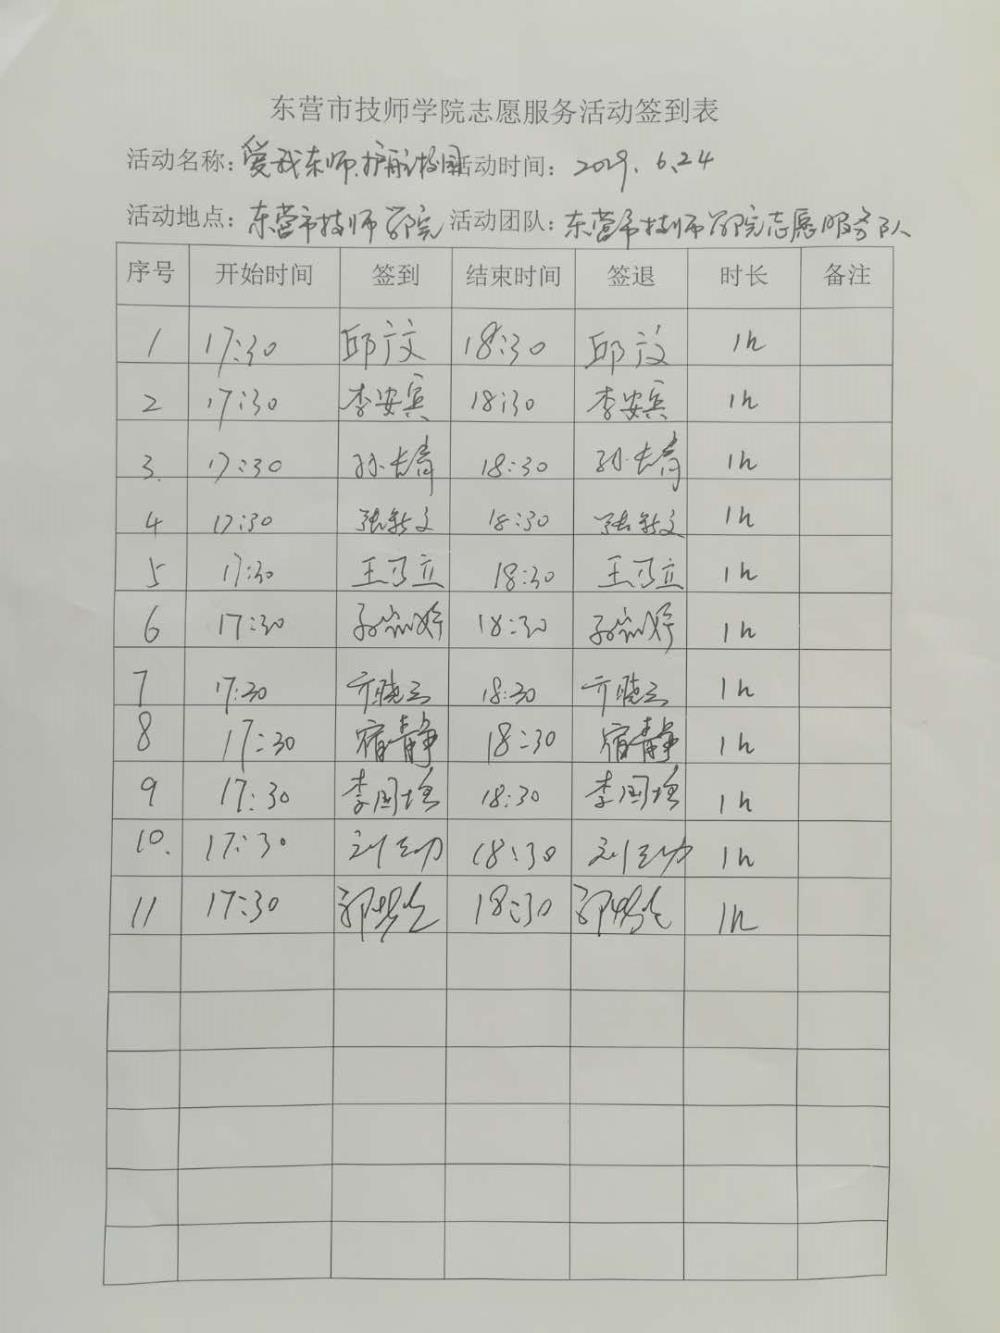 东营市技师学院志愿服务活动签到表
活动名称：爱我东师.护航校园 活动时间：2019.6.24
活动地点：东营市技师学院 活动团队：东营市技师学院志愿服务队
序号 开始时间 签到 结束时间 签退 时长 备注
1 17:30 邱文 18:30 邱文 1h
2 17:30 李安宾 18:30 李安宾 1h
3. 17:30 孙志奇 18:30 孙志奇 1h
4 17:30 张新文 18:30 张新文 1h
5 17:30 王乃立 18:30 王乃立 1h
6 17:30 18:30 1h
7 17:30 亓晓云 18:30 亓晓云 1h
8 17:30 宿静 18:30 宿静 1h
9 17:30 李国增 18:30 李国增 1h
10. 17:30 18:30 1h
11 17:30 18:30 1h